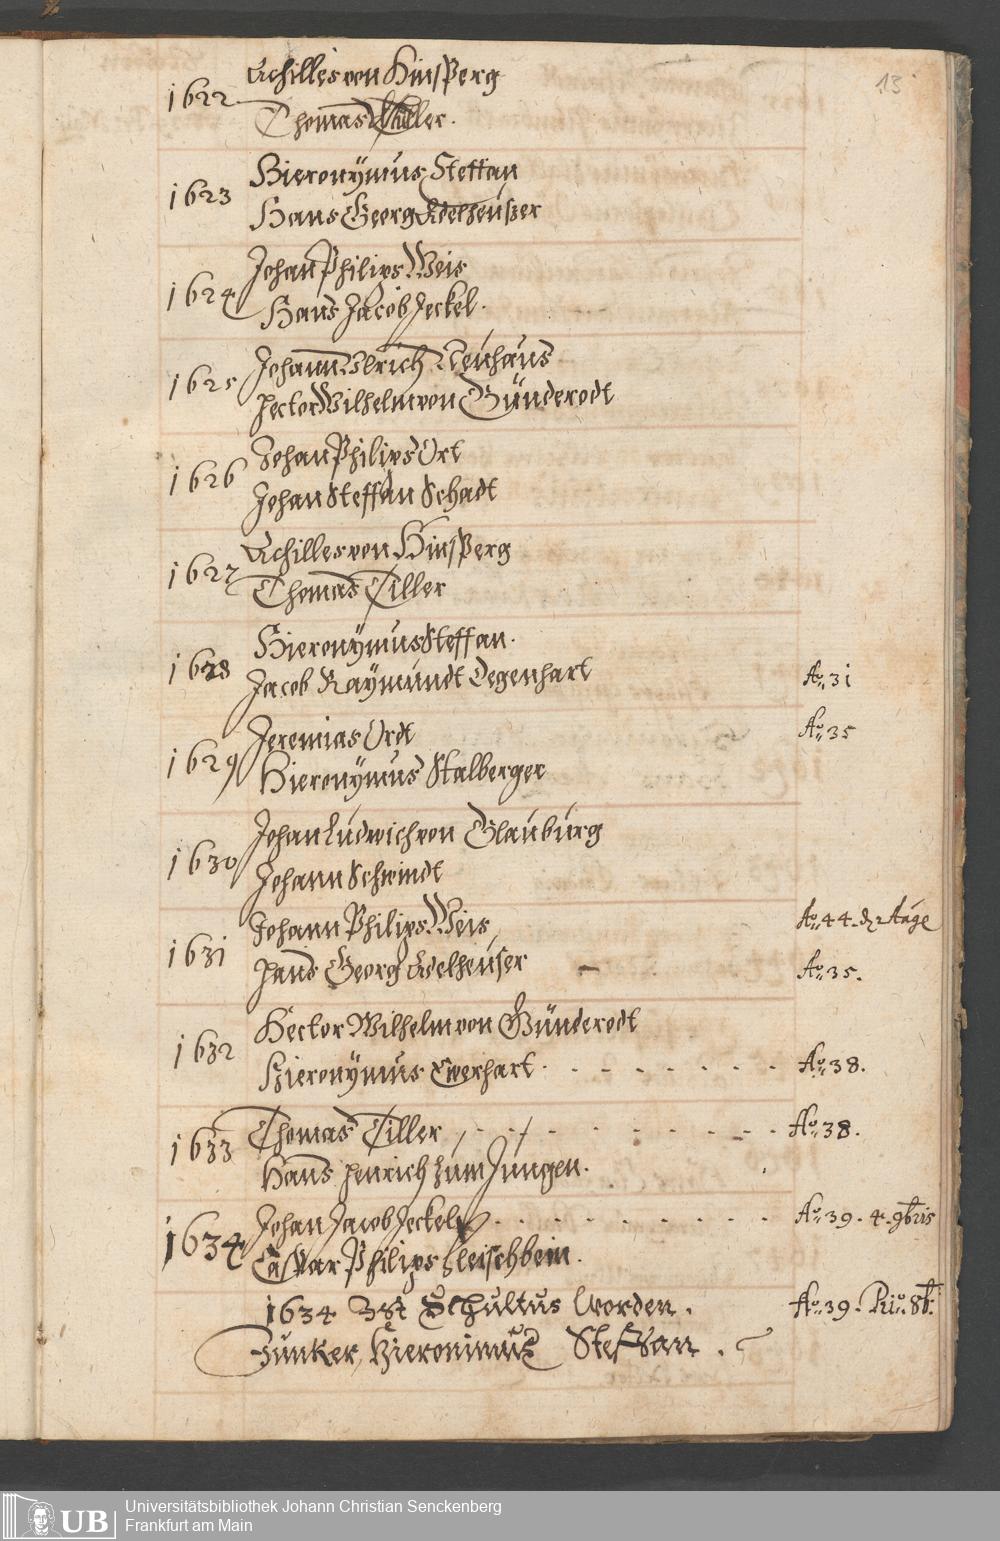 13
Achilles von Hinsperg
1622
Thomas Tiller.
Hieronÿmus Steffan
1623
Hans Georg Edelheußer
Johan Philips Weis
1624
Hans Jacob Jeckel.
Johann Ulrich Neuhaus
1625
Hector Wilhelm von Günderodt
Johan Philips Ort
1626
Johan Steffan Schadt
Achilles von Hinsperg
1627
Thomas Tiller
Hieronÿmus Steffan.
1628
Jacob Raÿmundt Degenhart Ao. 31
Jeremias Ordt Ao. 35
1629
Hieronÿmus Stalberger
Johan Ludwich von Glauburg
1630
Johann Schwindt
Johann Philips Weis Ao. 44. d. 2 Aug
1631
Hans Georg Edelheußer Ao. 35.
Hector Wilhelm von Günderodt
1632
Hieronÿmus Everhart Ao. 38.
Thomas Tiller Ao. 38.
1633
Hans Henrich zum Jungen.
Johan Jacob Jeckel Ao. 39. 4. 9bris
1634
Caspar Philips Fleischbein.
1634 Ist Schultus Worden. Ao. 39. 8b.
Junker Hieronimus Steffan.
UB
Universitätsbibliothek Johann Christian Senckenberg
Frankfurt am Main